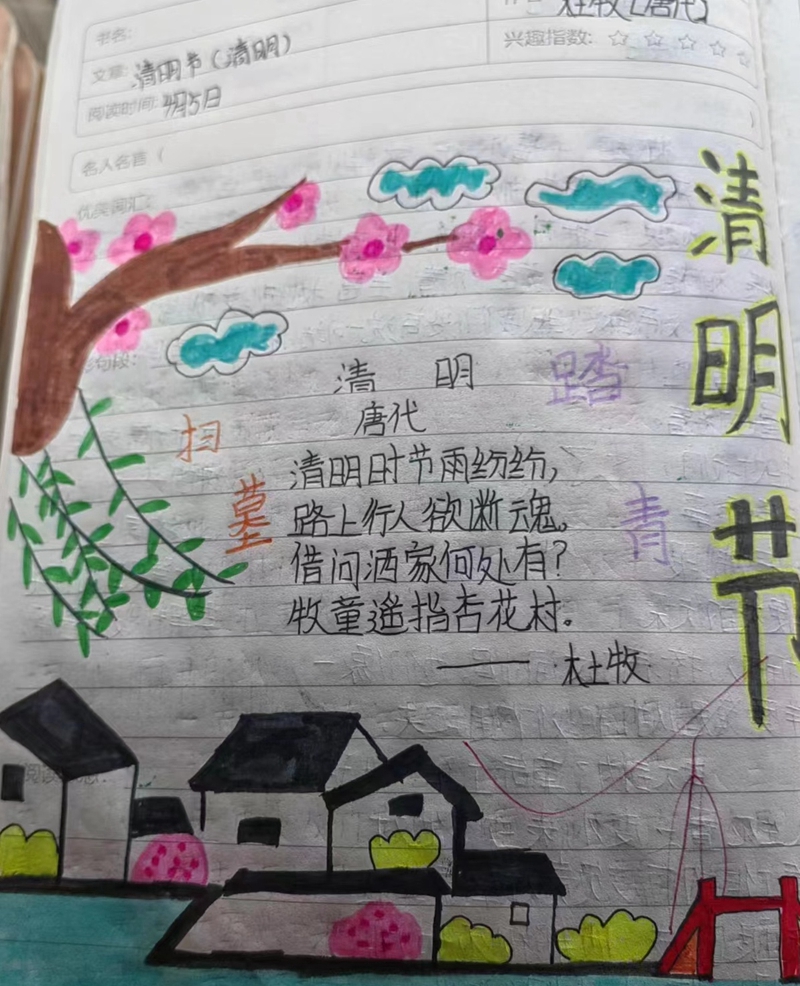 书名:
杜牧[唐代]
文章: 清明节(清明)
兴趣指数: ☆ ☆ ☆ ☆ ☆
阅读时间: 4月5日
名人名言 (
优美词汇:
句段:
清明节
清 明
唐代
清明时节雨纷纷,
路上行人欲断魂。
借问洒家何处有?
牧童遥指杏花村。
—— 杜牧
扫墓
踏青